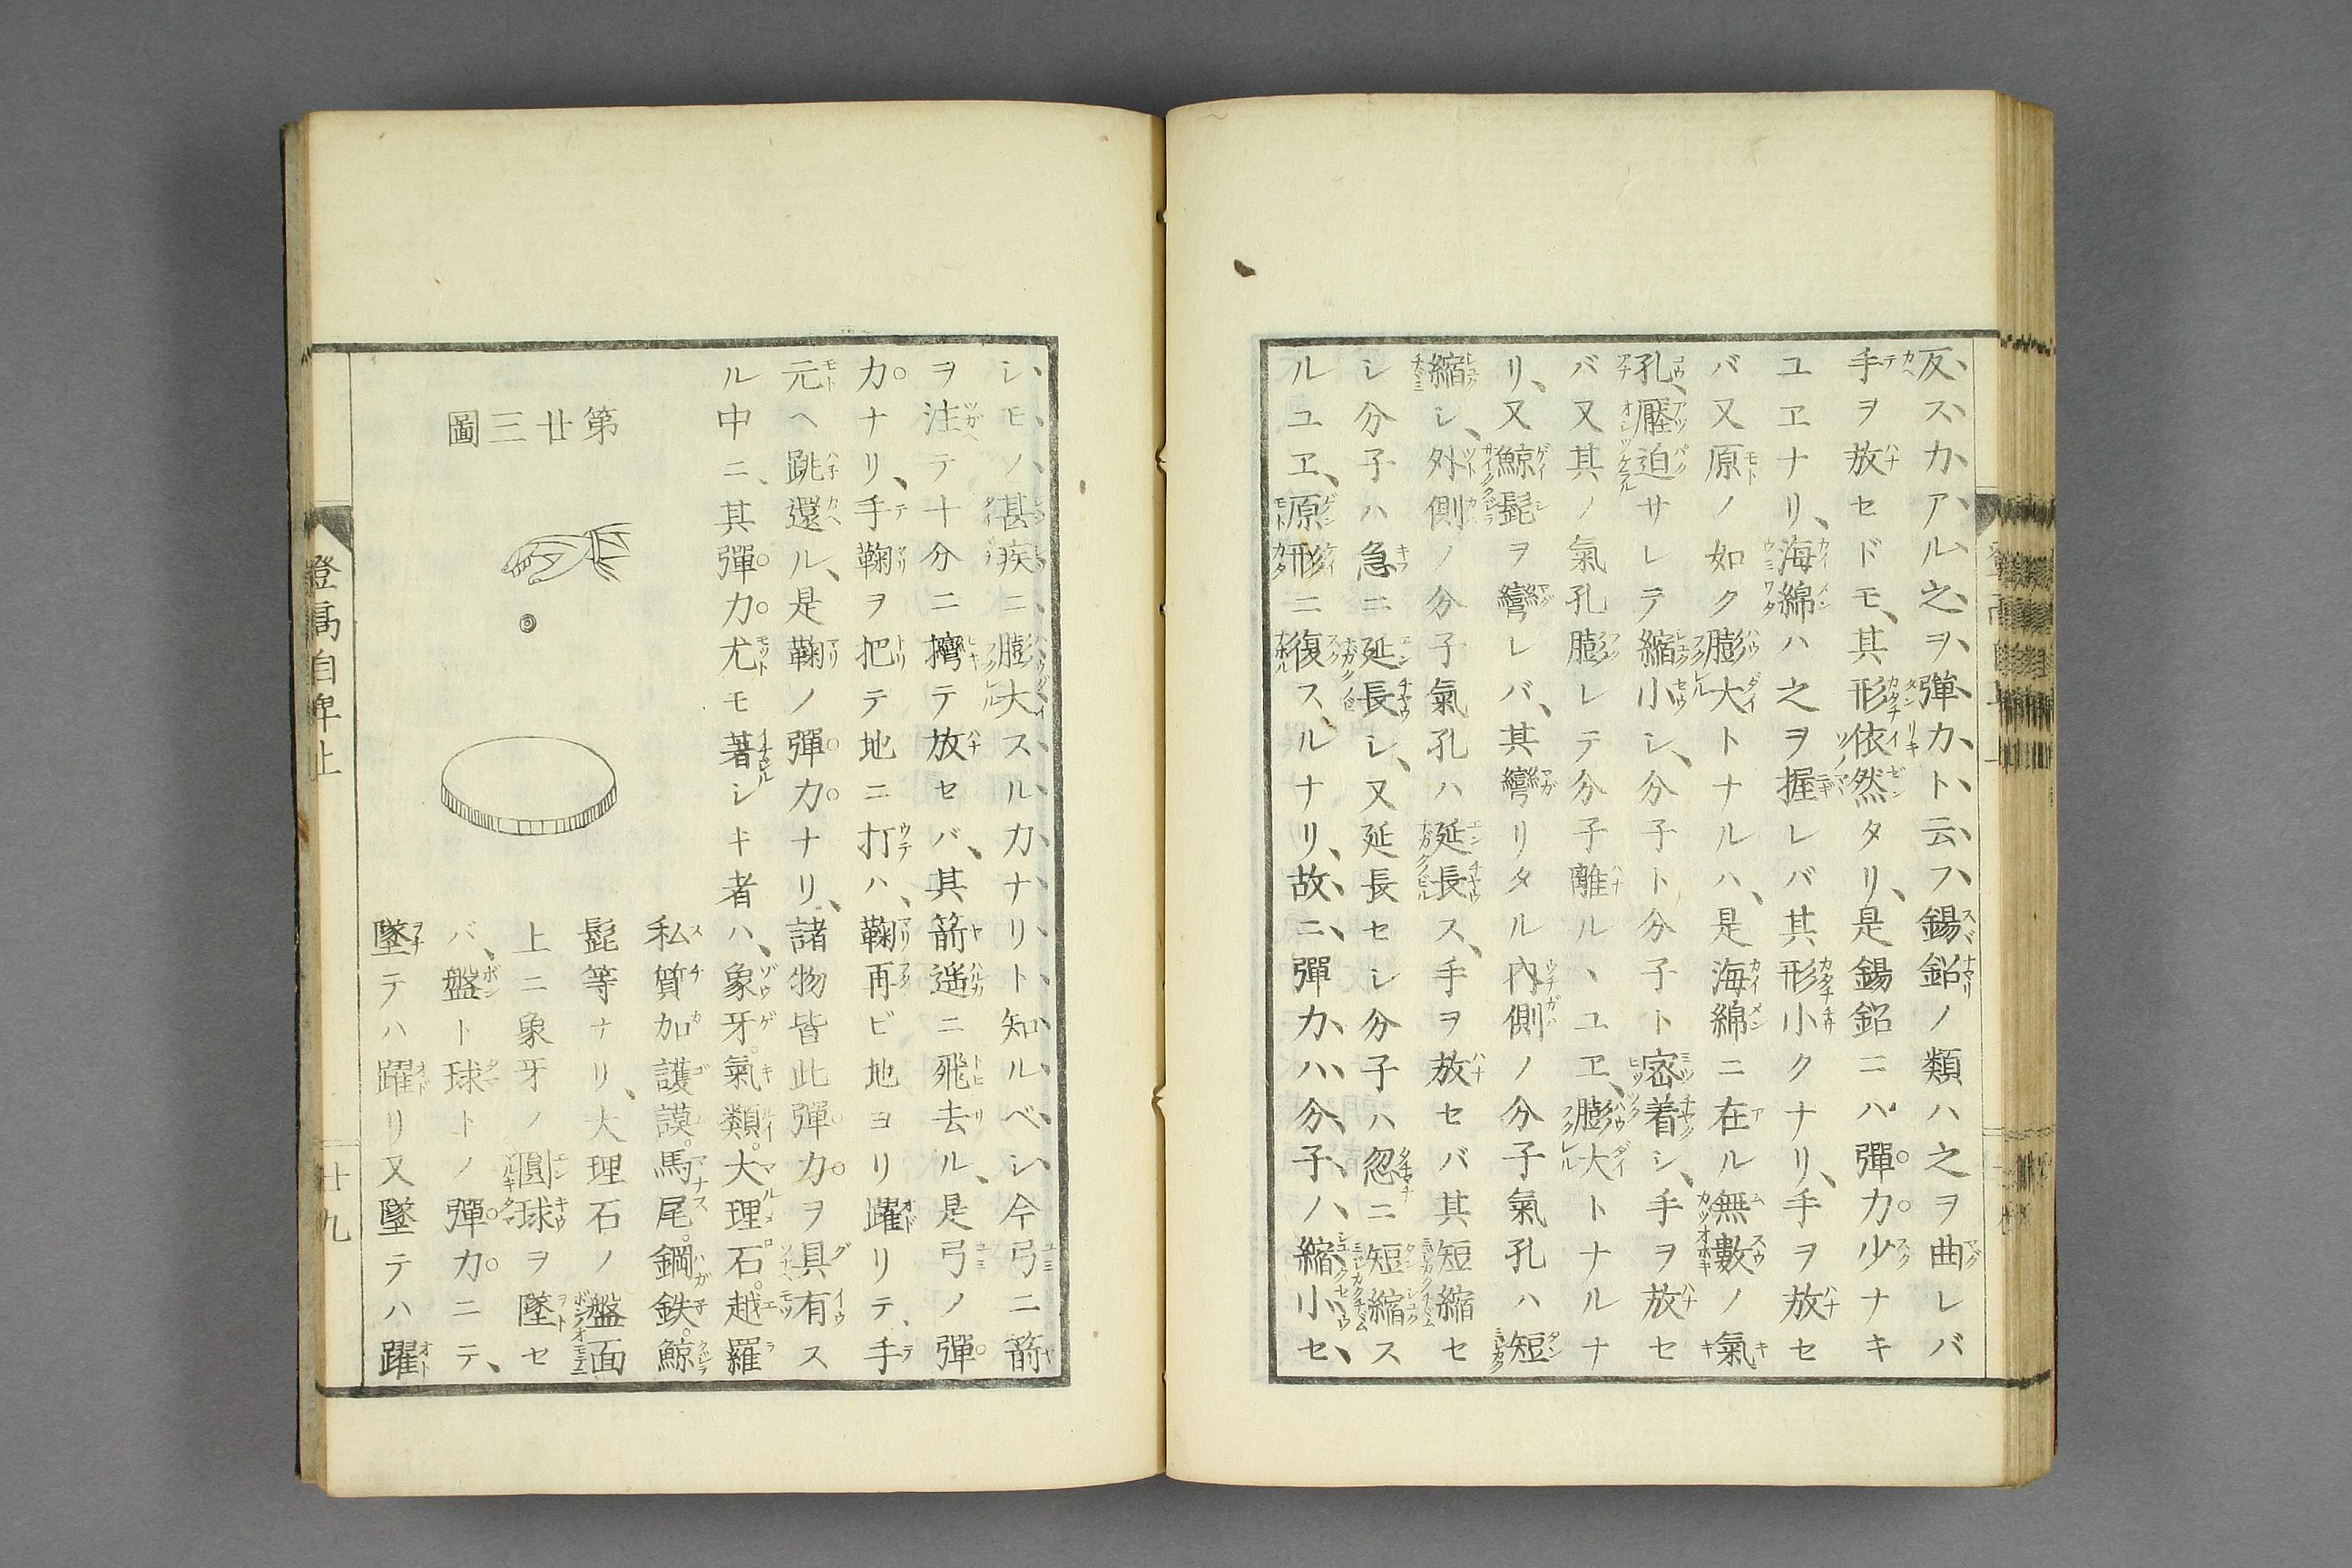 反スカアル之ヲ彈力ト云フ錫鉛ノ類ハ之ヲ曲レバ
手ヲ放セドモ、其形依然タリ、是錫鉛ニハ彈力少ナキ
ユヱナリ、海綿ハ之ヲ握レバ其形小クナリ、手ヲ放セ
バ又原ノ如ク膨大トナルハ、是海綿ニ在ル無數ノ氣
孔、壓迫サレテ縮小シ、分子ト分子ト密着シ、手ヲ放セ
バ又其ノ氣孔膨レテ分子離ルヽユヱ、膨大トナルナ
リ、又鯨髭ヲ彎レバ、其彎リタル內側ノ分子氣孔ハ短
縮シ、外側ノ分子氣孔ハ延長ス、手ヲ放セバ其短縮セ
シ分子ハ急ニ延長シ、又延長セシ分子ハ忽ニ短縮ス
ルユヱ、原形ニ復スルナリ、故ニ彈力ハ分子ノ縮小セ
シモノ甚疾ニ膨大スル力ナリト知ルベシ今弓ニ箭
ヲ注テ十分ニ擠テ放セバ、其箭遙ニ飛去ル、是弓ノ彈
力ナリ、手鞠ヲ把テ地ニ打ハ、鞠再ビ地ヨリ躍リテ、手
元ヘ跳還ル、是鞠ノ彈力ナリ、諸物皆此彈力ヲ具有ス
ル中ニ、其彈力尤モ著シキ者ハ、象牙。氣類。大理石。越羅
私質加護謨。馬尾。鋼鉄。鯨
髭等ナリ、大理石ノ盤面
上ニ象牙ノ圓球ヲ墜セ
バ、盤ト球トノ彈力ニテ、
墜テハ躍リ又墜テハ躍
第廿三圖
登高自卑上
廿九